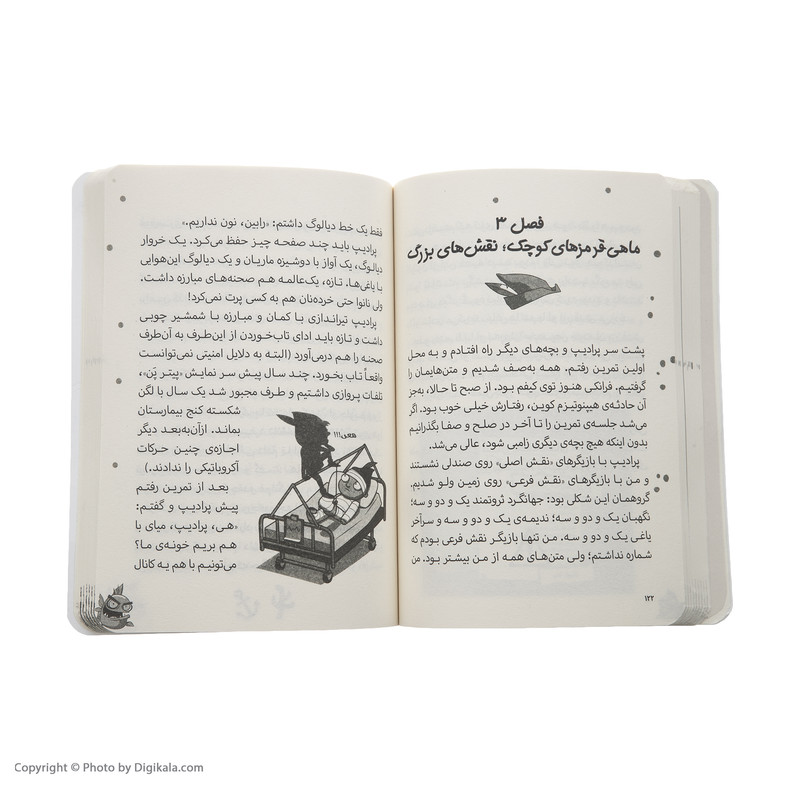 فصل ۳
ماهی‌قرمزهای کوچک؛ نقش‌های بزرگ
پشت سر پرادیپ و بچه‌های دیگر راه افتادم و به محل
اولین تمرین رفتم. همه به‌صف شدیم و متن‌هایمان را
گرفتیم. فرانکی هنوز توی کیفم بود. از صبح تا حالا، به‌جز
آن حادثه‌ی هیپنوتیزم کوین، رفتارش خیلی خوب بود. اگر
می‌شد جلسه‌ی تمرین را تا آخر در صلح و صفا بگذرانیم
بدون اینکه هیچ بچه‌ی دیگری زامبی شود، عالی می‌شد.
پرادیپ با بازیگرهای «نقش اصلی» روی صندلی نشستند
و من با بازیگرهای «نقش فرعی» روی زمین ولو شدیم.
گروهمان این شکلی بود: جهانگرد ثروتمند یک و دو و سه؛
نگهبان یک و دو و سه؛ ندیمه‌ی یک و دو و سه و سرآخر
یاغی یک و دو و سه. من تنها بازیگر نقش فرعی بودم که
شماره نداشتم؛ ولی متن‌های همه از من بیشتر بود. من
۱۲۲
فقط یک خط دیالوگ داشتم: «رابین، نون نداریم.»
پرادیپ باید چند صفحه چیز حفظ می‌کرد. یک خروار
دیالوگ، یک آواز با دوشیزه ماریان و یک دیالوگ این‌هوایی
با یاغی‌ها. تازه، یک‌عالمه هم صحنه‌های مبارزه داشت.
ولی نانوا حتی خرده‌نان هم به کسی پرت نمی‌کرد!
پرادیپ تیراندازی با کمان و مبارزه با شمشیر چوبی
داشت و تازه باید ادای تاب‌خوردن از این‌طرف به آن‌طرف
صحنه را هم درمی‌آورد (البته به دلایل امنیتی نمی‌توانست
واقعاً تاب بخورد. چند سال پیش سر نمایش «پیتر پَن»،
تلفات پروازی داشتیم و طرف مجبور شد یک سال با لگن
شکسته کنج بیمارستان
بماند. ازآن‌به‌بعد دیگر
اجازه‌ی چنین حرکات
آکروباتیکی را ندادند.)
بعد از تمرین رفتم
پیش پرادیپ و گفتم:
«هی، پرادیپ، میای با
هم بریم خونه‌ی ما؟
می‌تونیم با هم یه کانال
Copyright © Photo by Digikala.com